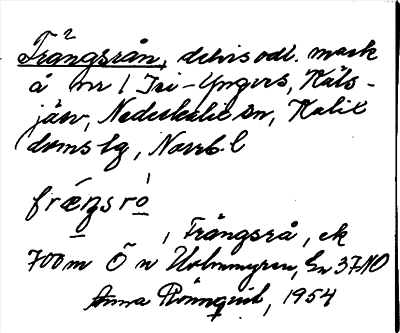 Trångsrån, delvis odl. mark
å nr 1 Isi-Yngers, Räls-
järv, Nederkalix sn, Kalix
domslg, Norrb. l
frængsro
, Trångsrå, ek
700 m Ö n Holmmyren, Gr 37 NO
Anna Rönnqvist, 1954